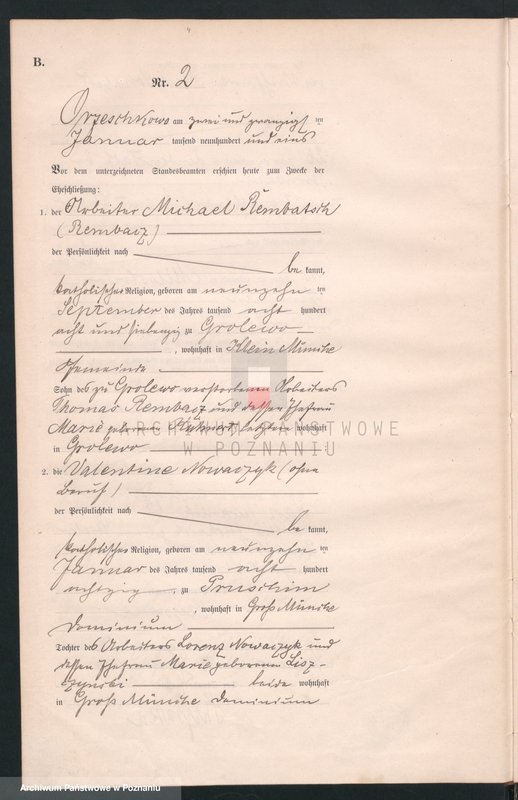 B.
Nr. 2
Orzeschkowo am zwei und zwanzigsten
Januar tausend neunhundert und eins
Vor dem unterzeichneten Standesbeamten erschien heute zum Zwecke der
Eheschließung:
1. der Arbeiter Michael Rembatsch
(Rembacz)
der Persönlichkeit nach
be kannt,
katholischer Religion, geboren am neunzehn ten
September des Jahres tausend acht hundert
acht und siebenzig zu Grolewo
, wohnhaft in Klein Münche
Gemeinde
Sohn des zu Grolewo verstorbenen Arbeiters
Thomas Rembacz und dessen Ehefrau
Marie geborenen letztere wohnhaft
in Grolewo
2. die Valentine Nowaczyk (ohne
Beruf)
der Persönlichkeit nach
be kannt,
katholischer Religion, geboren am neunzehn ten
Januar des Jahres tausend acht hundert
achtzig zu Pruschim
, wohnhaft in Groß Münche
Dominium
Tochter des Arbeiters Lorenz Nowaczyk und
dessen Ehefrau Marie geborenen Lisz-
czynski beide wohnhaft
in Groß Münche Dominium
ARCHIWUM PAŃSTWOWE
W POZNANIU
Archiwum Państwowe w Poznaniu